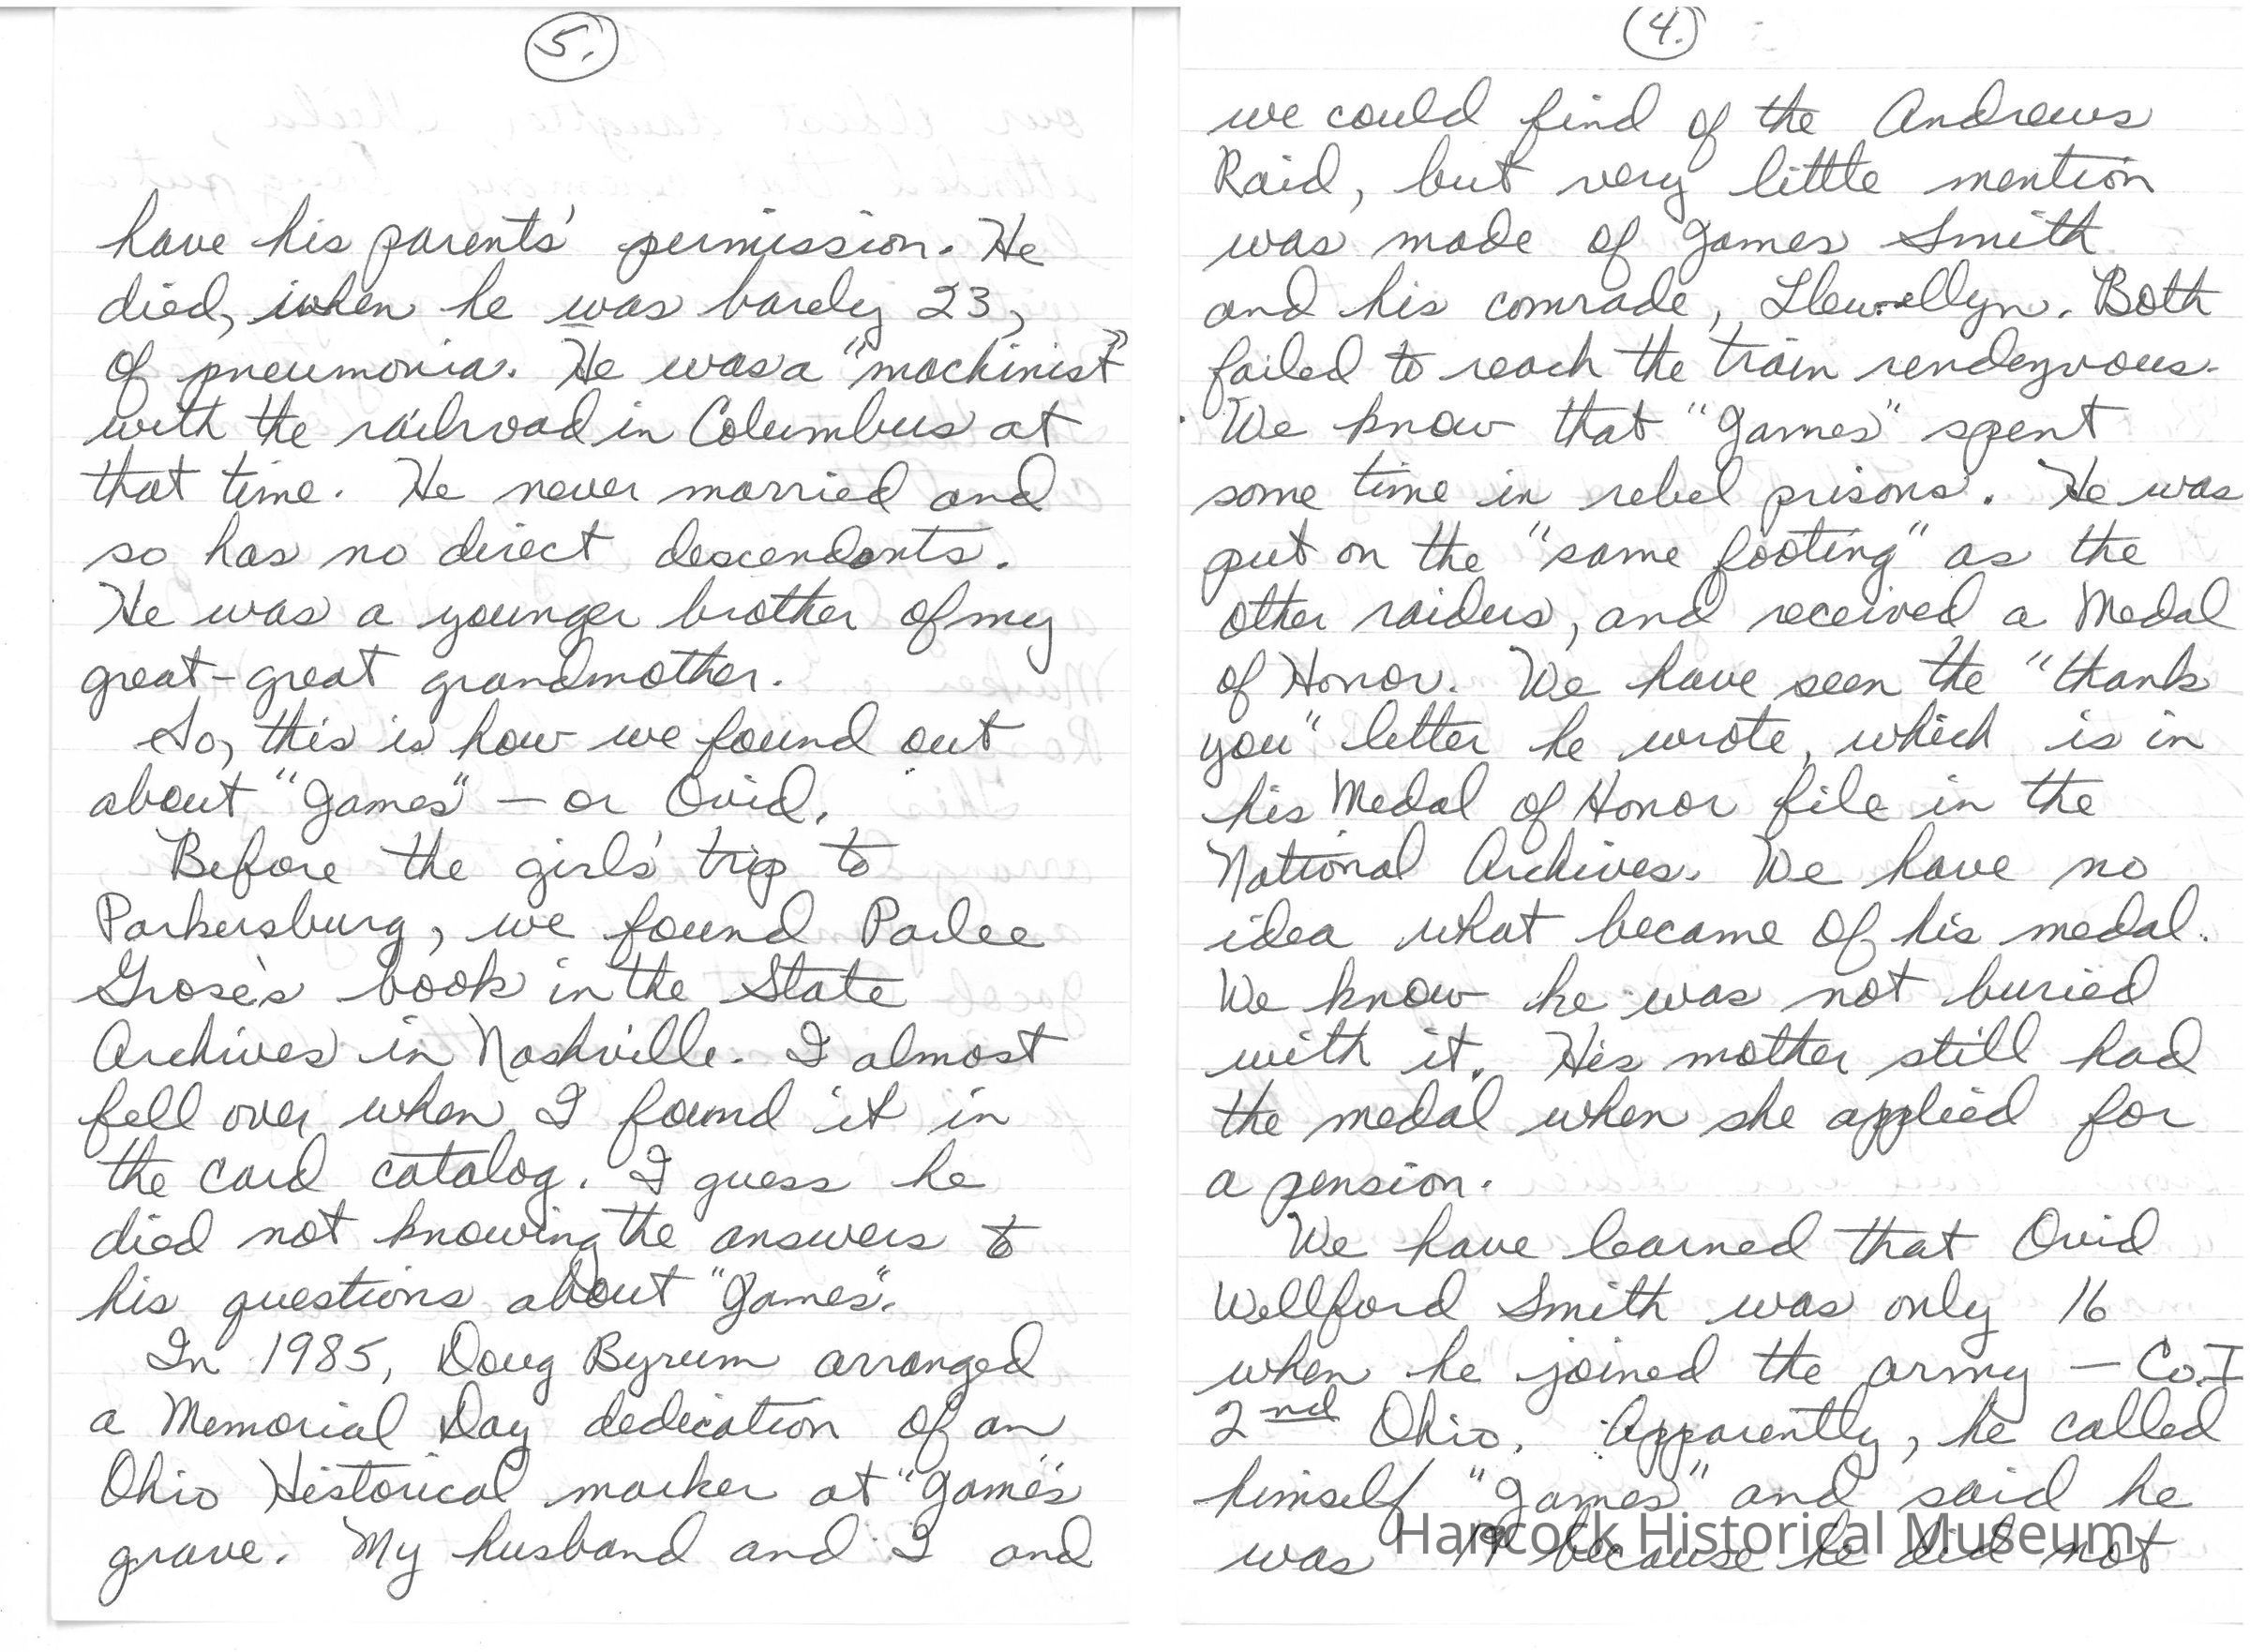 5.
have his parents' permission. He
died, when he was barely 23,
of pneumonia. He was a "machinist"
with the railroad in Columbus at
that time. He never married and
so has no direct descendants.
He was a younger brother of my
great-great grandmother.
So, this is how we found out
about "James" — or Ovid.
Before the girls' trip to
Parkersburg, we found Parlee
Grose's book in the State
Archives in Nashville. I almost
fell over when I found it in
the card catalog. I guess he
died not knowing the answers to
his questions about "James".
In 1985, Doug Byrum arranged
a Memorial Day dedication of an
Ohio Historical marker at "James'"
grave. My husband and I and
4.
we could find of the Andrews
Raid, but very little mention
was made of James Smith
and his comrade, Llewellyn. Both
failed to reach the train rendezvous.
We know that "James" spent
some time in rebel prisons. He was
put on the "same footing" as the
other raiders, and received a Medal
of Honor. We have seen the "thank
you" letter he wrote, which is in
his Medal of Honor file in the
National Archives. We have no
idea what became of his medal.
We know he was not buried
with it. His mother still had
the medal when she applied for
a pension.
We have learned that Ovid
Wellford Smith was only 16
when he joined the army — Co. I
2nd Ohio. Apparently, he called
himself "James" and said he
was 19 because he did not
Hancock Historical Museum